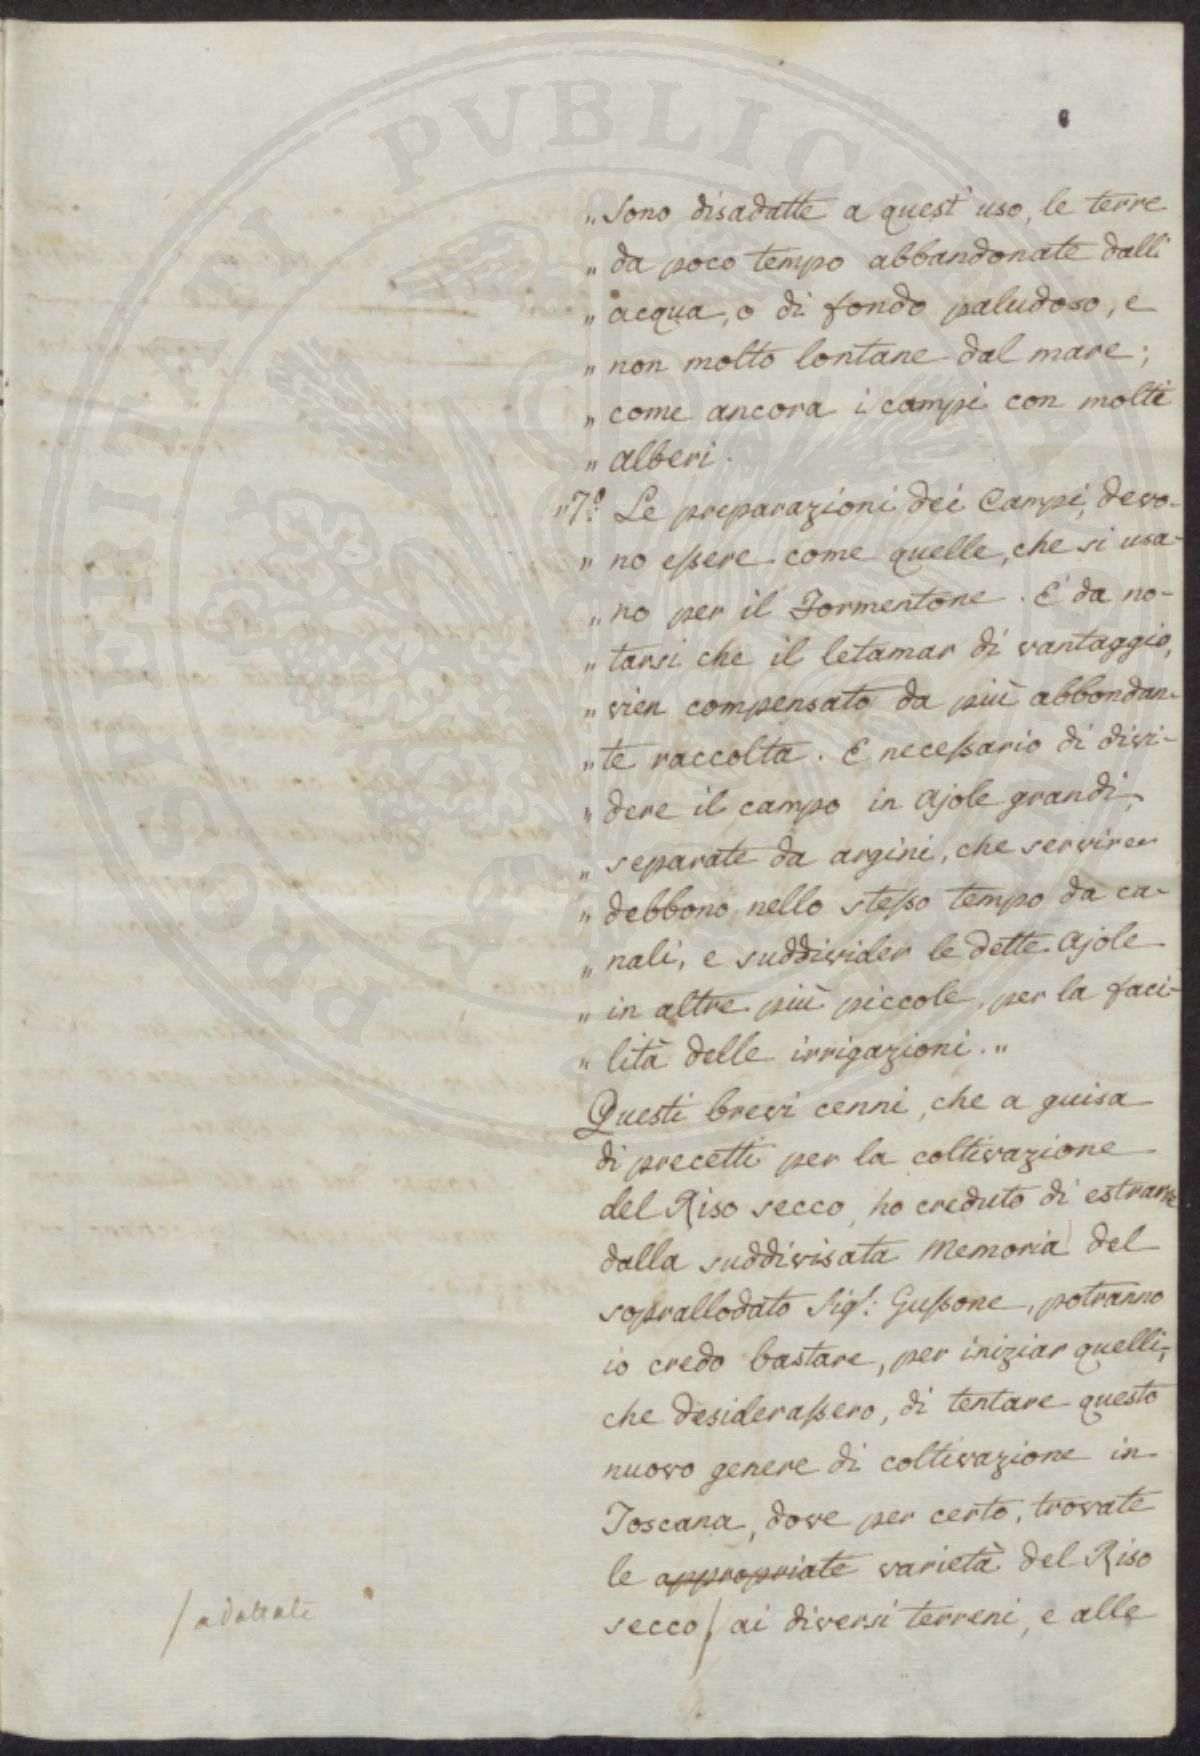 6
„ Sono disadatte a quest' uso, le terre
„ da poco tempo abbandonate dall'
„ acqua, o di fondo paludoso, e
„ non molto lontane dal mare;
„ come ancora i campi con molti
„ alberi.
„ 7.º Le preparazioni dei Campi, devo-
„ no essere come quelle, che si usa-
„ no per il Formentone. E' da no-
„ tarsi che il letamar di vantaggio,
„ vien compensato da più abbondan-
„ te raccolta. E necessario di divi-
„ dere il campo in Ajole grandi,
„ separate da argini, che servirer
„ debbono nello stesso tempo da ca-
„ nali, e suddivider le dette Ajole
„ in altre più piccole, per la faci-
„ lità delle irrigazioni. „
Questi brevi cenni, che a guisa
di precetti per la coltivazione
del Riso secco, ho creduto di estrarre
dalla suddivisata Memoria del
soprallodato Sigʳ: Gussone, potranno
io credo bastare, per iniziar quelli,
che desiderassero, di tentare questo
nuovo genere di coltivazione in
Toscana, dove per certo, trovate
le appropriate varietà del Riso
secco / ai diversi terreni, e alle
/ adattate
PROSPERITATI PVBLICAE